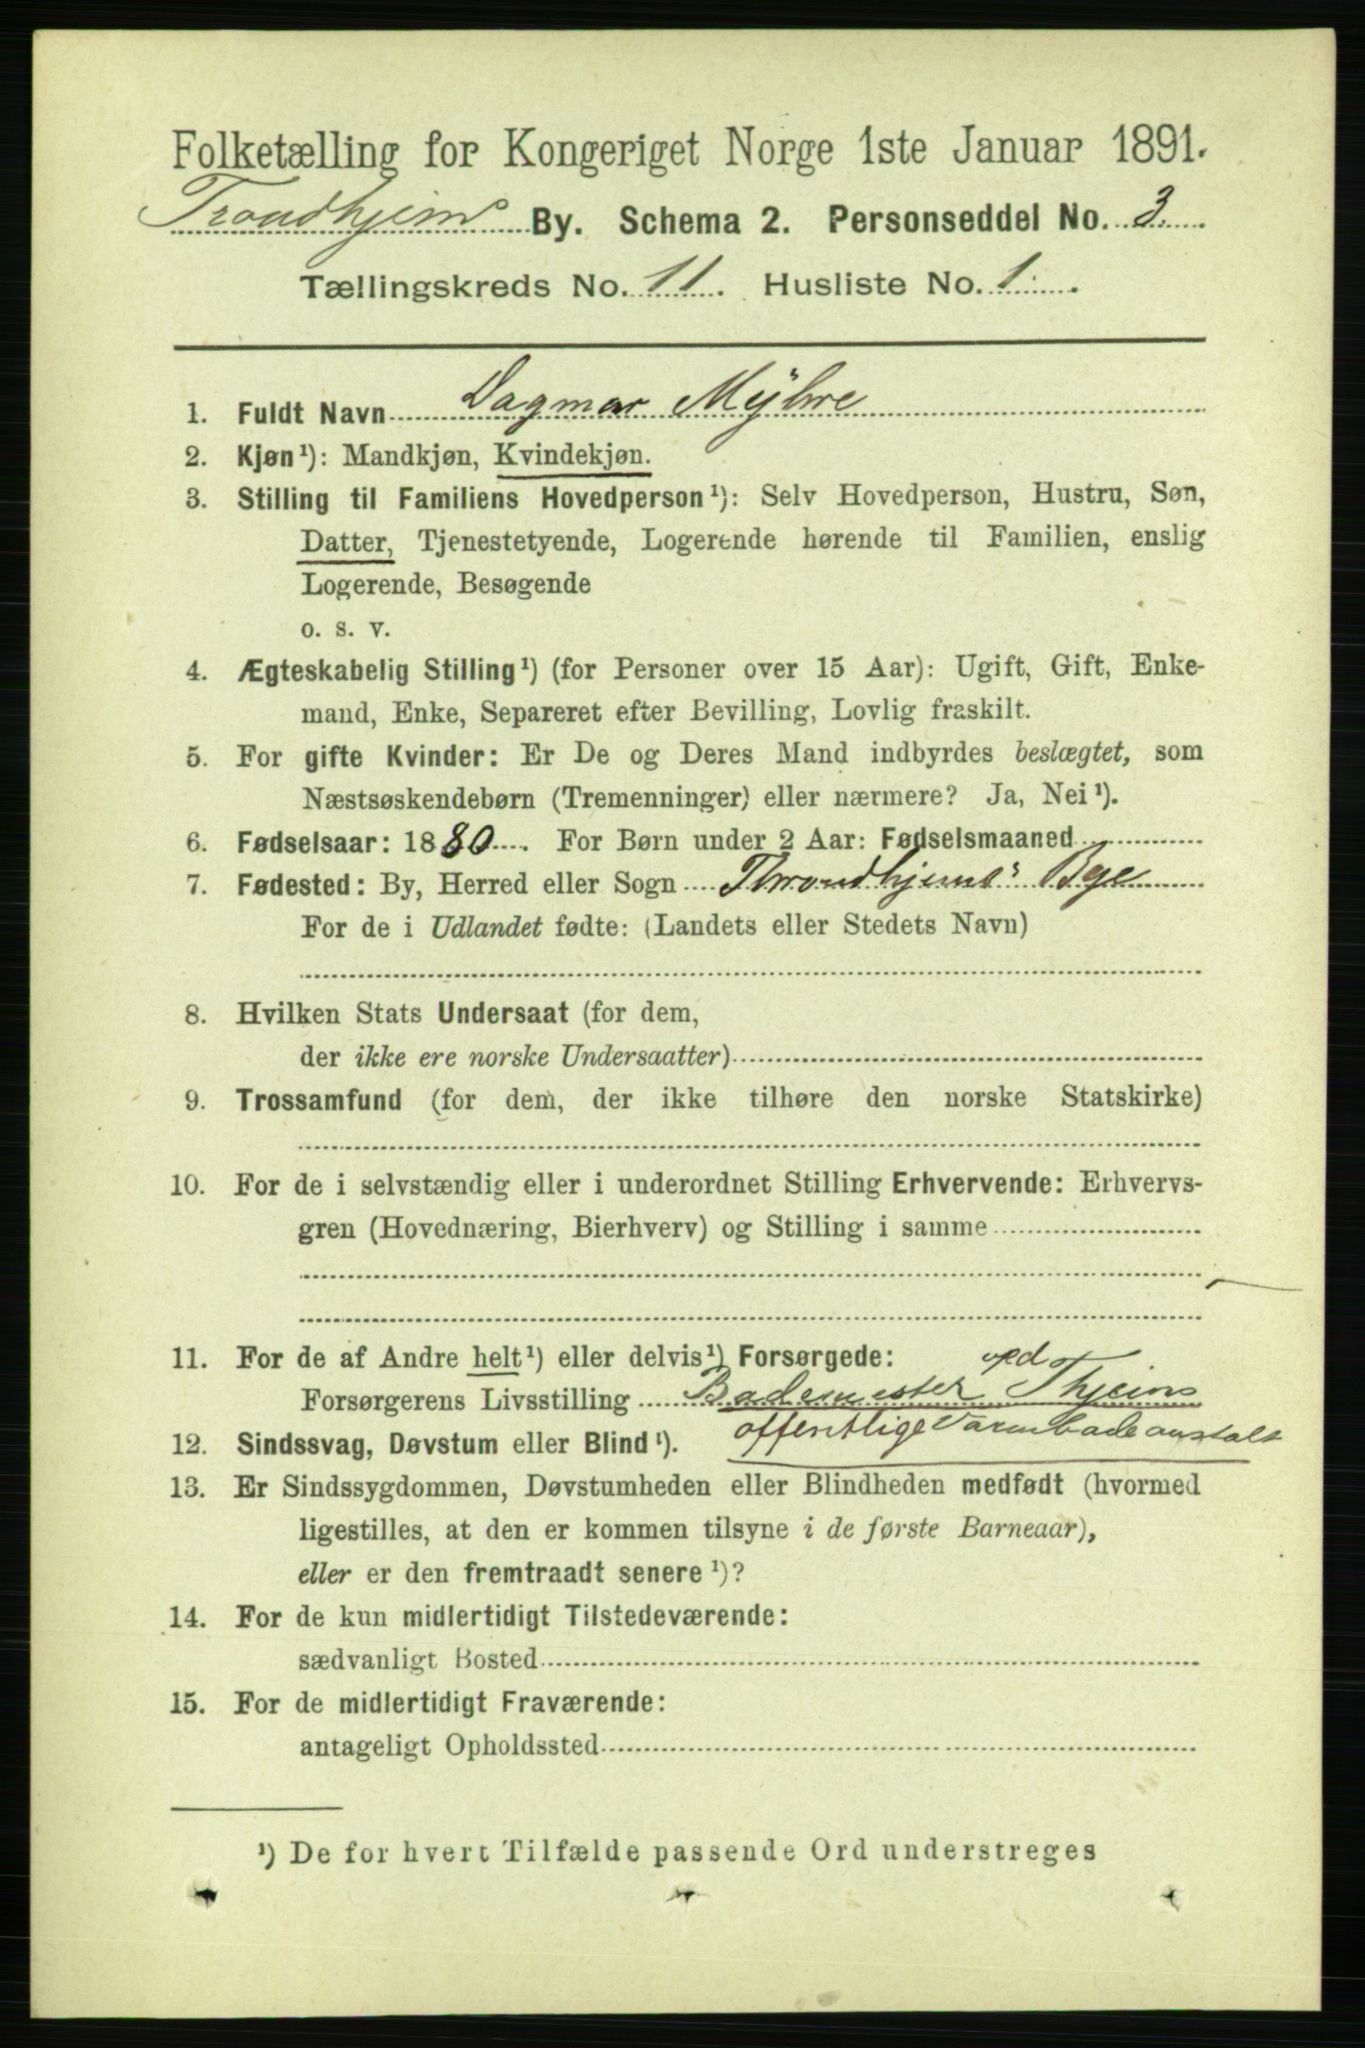 Folketælling for Kongeriget Norge 1ste Januar 1891.
Trondhjem By. Schema 2. Personseddel No. 3.
Tællingskreds No. 11. Husliste No. 1.
1. Fuldt Navn Dagmar Myhre
2. Kjøn¹): Mandkjøn, Kvindekjøn.
3. Stilling til Familiens Hovedperson¹): Selv Hovedperson, Hustru, Søn,
Datter, Tjenestetyende, Logerende hørende til Familien, enslig
Logerende, Besøgende
o. s. v.
4. Ægteskabelig Stilling¹) (for Personer over 15 Aar): Ugift, Gift, Enke-
mand, Enke, Separeret efter Bevilling, Lovlig fraskilt.
5. For gifte Kvinder: Er De og Deres Mand indbyrdes beslægtet, som
Næstsøskendebørn (Tremenninger) eller nærmere? Ja, Nei¹).
6. Fødselsaar: 1880. For Børn under 2 Aar: Fødselsmaaned
7. Fødested: By, Herred eller Sogn Throndhjems Bye
For de i Udlandet fødte: (Landets eller Stedets Navn)
8. Hvilken Stats Undersaat (for dem,
der ikke ere norske Undersaatter)
9. Trossamfund (for dem, der ikke tilhøre den norske Statskirke)
10. For de i selvstændig eller i underordnet Stilling Erhvervende: Erhvervs-
gren (Hovednæring, Bierhverv) og Stilling i samme
11. For de af Andre helt¹) eller delvis¹) Forsørgede: ved
Forsørgerens Livsstilling Bademester Thjems
offentlige Varmbadeanstalt
12. Sindssvag, Døvstum eller Blind¹).
13. Er Sindssygdommen, Døvstumheden eller Blindheden medfødt (hvormed
ligestilles, at den er kommen tilsyne i de første Barneaar),
eller er den fremtraadt senere¹)?
14. For de kun midlertidigt Tilstedeværende:
sædvanligt Bosted
15. For de midlertidigt Fraværende:
antageligt Opholdssted
¹) De for hvert Tilfælde passende Ord understreges